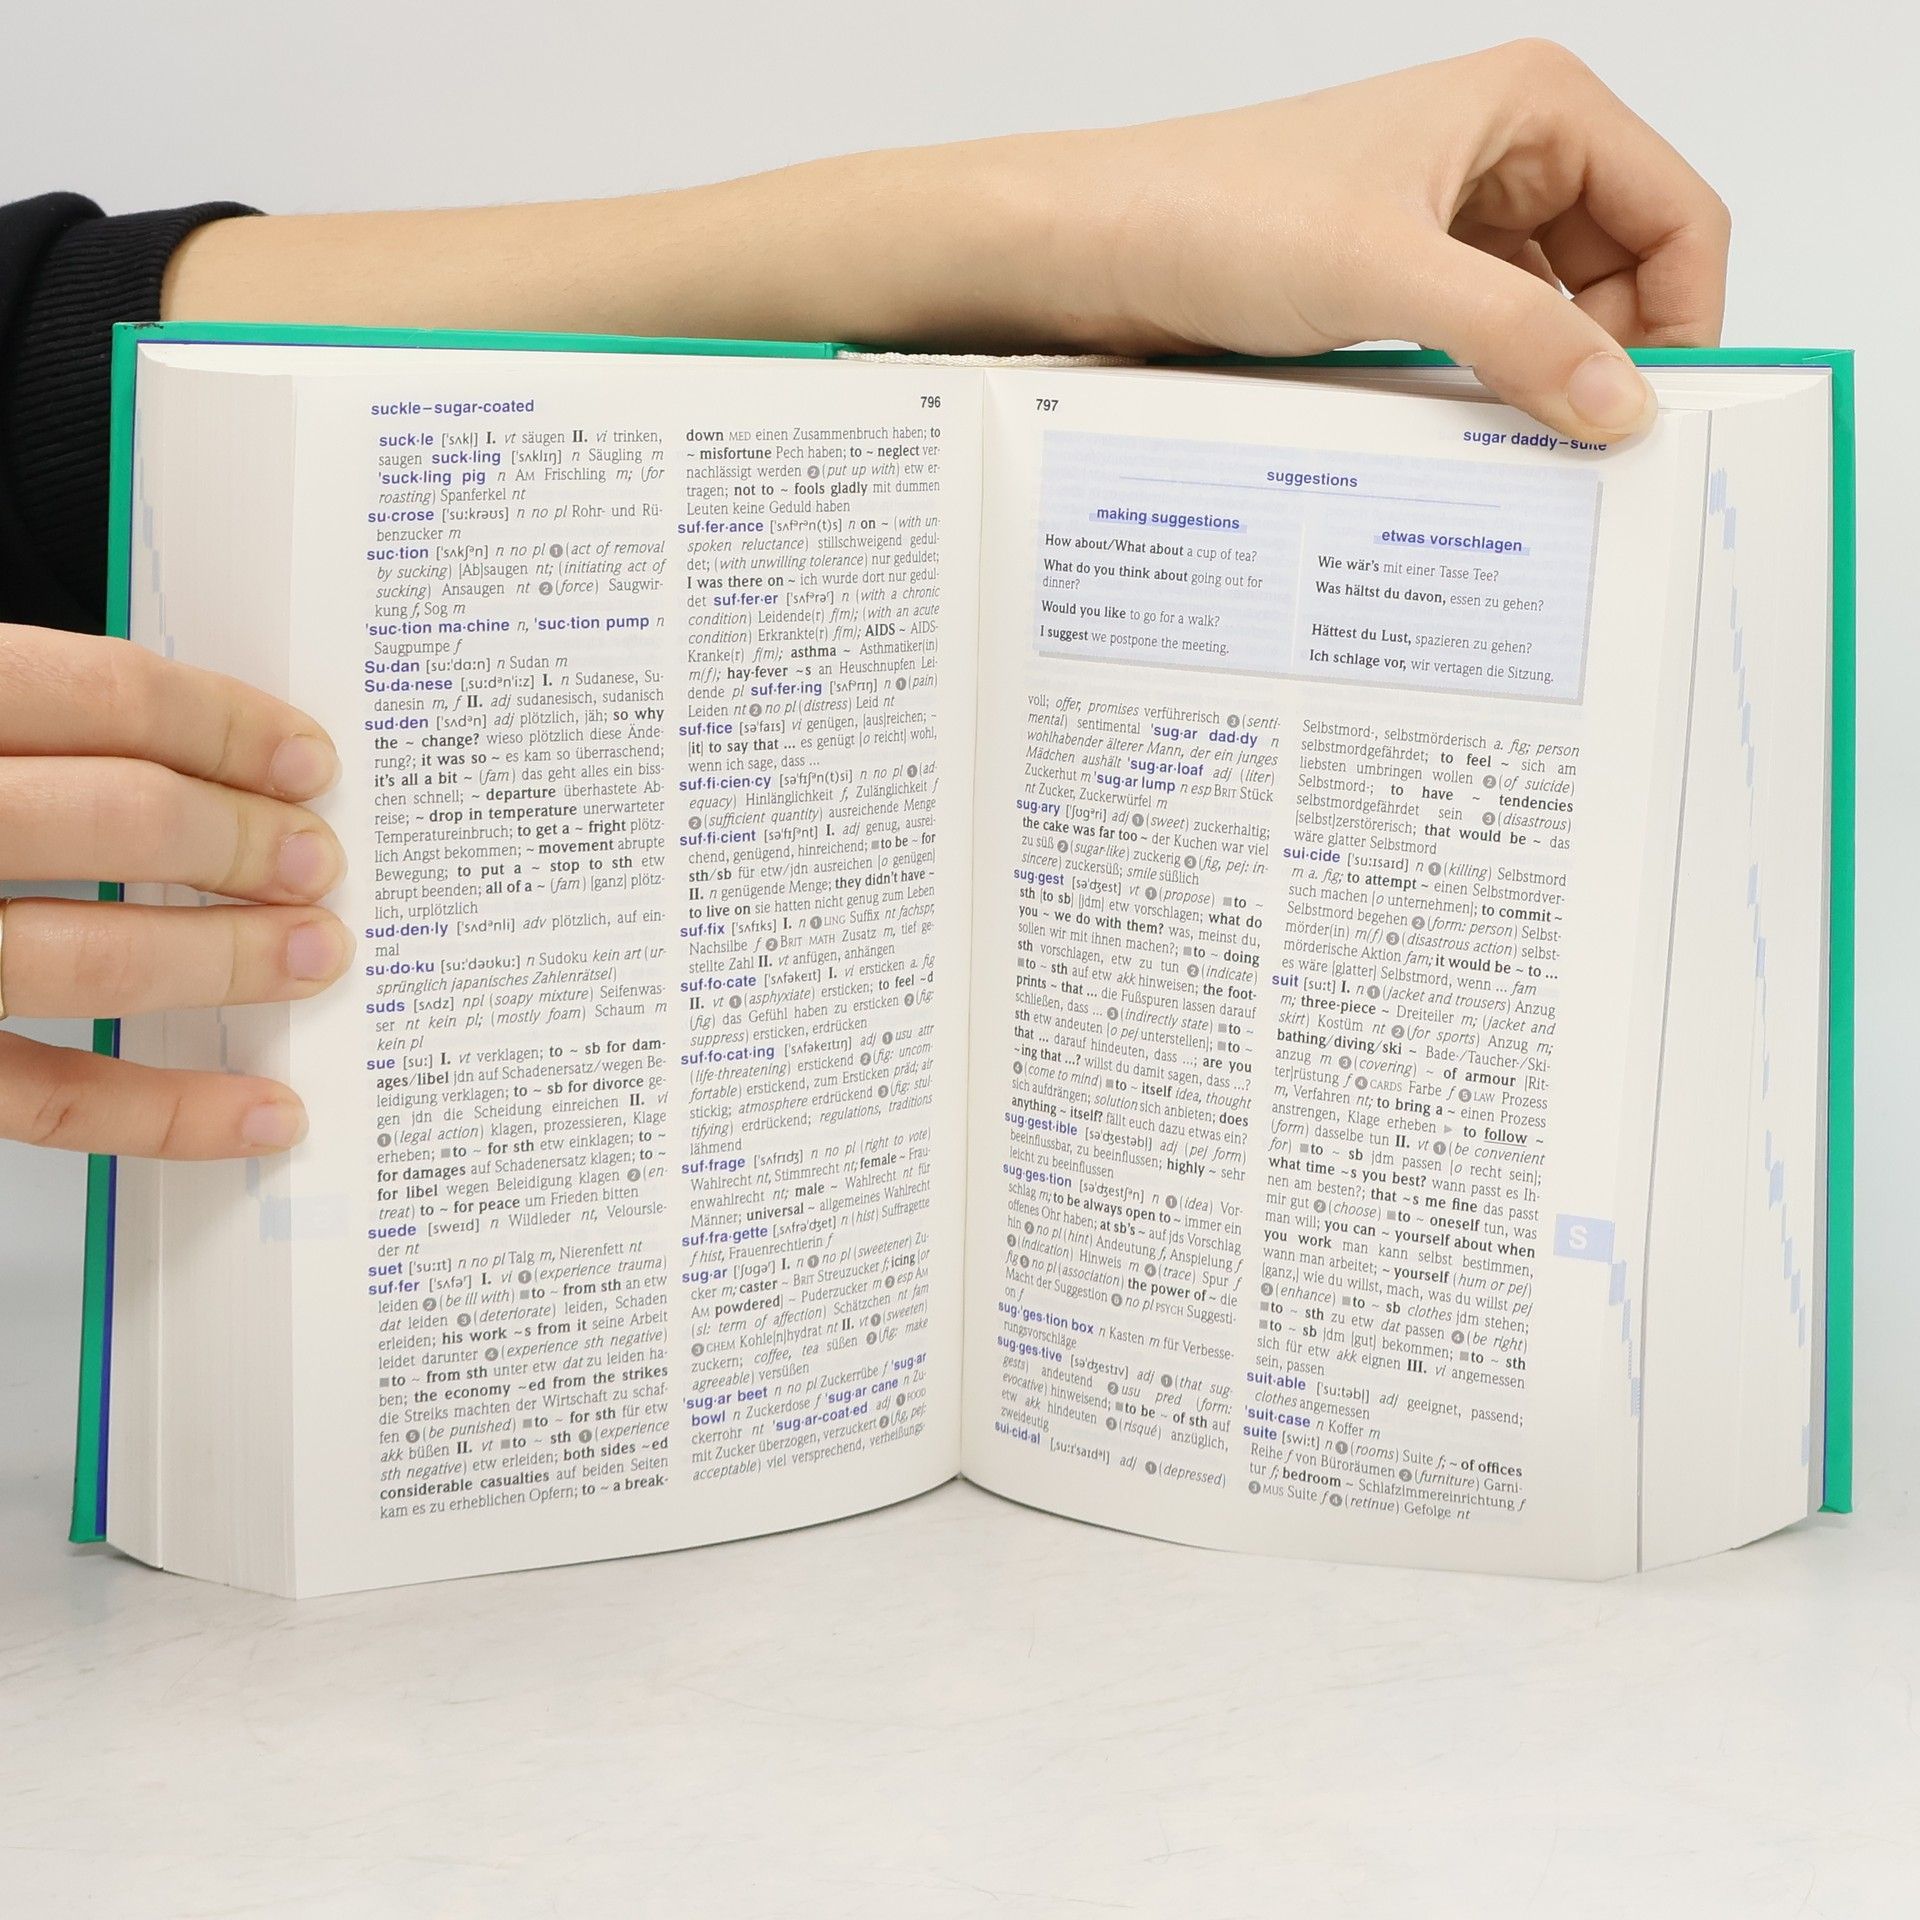 suckle–sugar-coated
796
suck·le ['sʌkl̩] I. vt säugen II. vi trinken,
saugen suck·ling ['sʌklɪŋ] n Säugling m
'suck·ling pig n AM Frischling m; (for
roasting) Spanferkel nt
su·crose ['su:krəʊs] n no pl Rohr- und Rü-
benzucker m
suc·tion ['sʌkʃᵊn] n no pl ❶ (act of removal
by sucking) [Ab]saugen nt; (initiating act of
sucking) Ansaugen nt ❷ (force) Saugwir-
kung f, Sog m
'suc·tion ma·chine n, 'suc·tion pump n
Saugpumpe f
Su·dan [su:'dɑ:n] n Sudan m
Su·da·nese [ˌsu:dᵊn'i:z] I. n Sudanese, Su-
danesin m, f II. adj sudanesisch, sudanisch
sud·den ['sʌdᵊn] adj plötzlich, jäh; so why
the ~ change? wieso plötzlich diese Ände-
rung?; it was so ~ es kam so überraschend;
it's all a bit ~ (fam) das geht alles ein biss-
chen schnell; ~ departure überhastete Ab-
reise; ~ drop in temperature unerwarteter
Temperatureinbruch; to get a ~ fright plötz-
lich Angst bekommen; ~ movement abrupte
Bewegung; to put a ~ stop to sth etw
abrupt beenden; all of a ~ (fam) [ganz] plötz-
lich, urplötzlich
sud·den·ly ['sʌdᵊnli] adv plötzlich, auf ein-
mal
su·do·ku [su:'dəʊku:] n Sudoku kein art (ur-
sprünglich japanisches Zahlenrätsel)
suds [sʌdz] npl (soapy mixture) Seifenwas-
ser nt kein pl; (mostly foam) Schaum m
kein pl
sue [su:] I. vt verklagen; to ~ sb for dam-
ages/libel jdn auf Schadenersatz/wegen Be-
leidigung verklagen; to ~ sb for divorce ge-
gen jdn die Scheidung einreichen II. vi
❶ (legal action) klagen, prozessieren, Klage
erheben; ■to ~ for sth etw einklagen; to ~
for damages auf Schadenersatz klagen; to ~
for libel wegen Beleidigung klagen ❷ (en-
treat) to ~ for peace um Frieden bitten
suede [sweɪd] n Wildleder nt, Veloursle-
der nt
suet ['su:ɪt] n no pl Talg m, Nierenfett nt
suf·fer ['sʌfəʳ] I. vi ❶ (experience trauma)
leiden ❷ (be ill with) ■to ~ from sth an etw
dat leiden ❸ (deteriorate) leiden, Schaden
erleiden; his work ~s from it seine Arbeit
leidet darunter ❹ (experience sth negative)
■to ~ from sth unter etw dat zu leiden ha-
ben; the economy ~ed from the strikes
die Streiks machten der Wirtschaft zu schaf-
fen ❺ (be punished) ■to ~ for sth für etw
akk büßen II. vt ■to ~ sth ❶ (experience
sth negative) etw erleiden; both sides ~ed
considerable casualties auf beiden Seiten
kam es zu erheblichen Opfern; to ~ a break-
down MED einen Zusammenbruch haben; to
~ misfortune Pech haben; to ~ neglect ver-
nachlässigt werden ❷ (put up with) etw er-
tragen; not to ~ fools gladly mit dummen
Leuten keine Geduld haben
suf·fer·ance ['sʌfᵊrᵊn(t)s] n on ~ (with un-
spoken reluctance) stillschweigend gedul-
det; (with unwilling tolerance) nur geduldet;
I was there on ~ ich wurde dort nur gedul-
det suf·fer·er ['sʌfᵊrəʳ] n (with a chronic
condition) Leidende(r) f(m); (with an acute
condition) Erkrankte(r) f(m); AIDS ~ AIDS-
Kranke(r) f(m); asthma ~ Asthmatiker(in)
m(f); hay-fever ~s an Heuschnupfen Lei-
dende pl suf·fer·ing ['sʌfᵊrɪŋ] n ❶ (pain)
Leiden nt ❷ no pl (distress) Leid nt
suf·fice [sə'faɪs] vi genügen, [aus]reichen; ~
[it] to say that ... es genügt [o reicht] wohl,
wenn ich sage, dass ...
suf·fi·cien·cy [sə'fɪʃᵊn(t)si] n no pl ❶ (ad-
equacy) Hinlänglichkeit f, Zulänglichkeit f
❷ (sufficient quantity) ausreichende Menge
suf·fi·cient [sə'fɪʃᵊnt] I. adj genug, ausrei-
chend, genügend, hinreichend; ■to be ~ for
sth/sb für etw/jdn ausreichen [o genügen]
II. n genügende Menge; they didn't have ~
to live on sie hatten nicht genug zum Leben
suf·fix ['sʌfɪks] I. n ❶ LING Suffix nt fachspr,
Nachsilbe f ❷ BRIT MATH Zusatz m, tief ge-
stellte Zahl II. vt anfügen, anhängen
suf·fo·cate ['sʌfəkeɪt] I. vi ersticken a. fig
II. vt ❶ (asphyxiate) ersticken; to feel ~d
(fig) das Gefühl haben zu ersticken ❷ (fig:
suppress) ersticken, erdrücken
suf·fo·cat·ing ['sʌfəkeɪtɪŋ] adj ❶ usu attr
(life-threatening) erstickend ❷ (fig: uncom-
fortable) erstickend, zum Ersticken präd; air
stickig; atmosphere erdrückend ❸ (fig: stul-
tifying) erdrückend; regulations, traditions
lähmend
suf·frage ['sʌfrɪdʒ] n no pl (right to vote)
Wahlrecht nt, Stimmrecht nt; female ~ Frau-
enwahlrecht nt; male ~ Wahlrecht nt für
Männer; universal ~ allgemeines Wahlrecht
suf·fra·gette [ˌsʌfrə'dʒet] n (hist) Suffragette
f hist, Frauenrechtlerin f
sug·ar ['ʃʊgəʳ] I. n ❶ no pl (sweetener) Zu-
cker m; caster ~ BRIT Streuzucker f; icing [or
AM powdered] ~ Puderzucker m ❷ esp AM
(sl: term of affection) Schätzchen nt fam
❸ CHEM Kohle[n]hydrat nt II. vt ❶ (sweeten)
zuckern; coffee, tea süßen ❷ (fig: make
agreeable) versüßen
'sug·ar beet n no pl Zuckerrübe f 'sug·ar
bowl n Zuckerdose f 'sug·ar cane n Zu-
ckerrohr nt 'sug·ar-coat·ed adj ❶ FOOD
mit Zucker überzogen, verzuckert ❷ (fig, pej:
acceptable) viel versprechend, verheißungs-
797
sugar daddy–suite
suggestions
making suggestions
How about/What about a cup of tea?
What do you think about going out for
dinner?
Would you like to go for a walk?
I suggest we postpone the meeting.
etwas vorschlagen
Wie wär's mit einer Tasse Tee?
Was hältst du davon, essen zu gehen?
Hättest du Lust, spazieren zu gehen?
Ich schlage vor, wir vertagen die Sitzung.
voll; offer, promises verführerisch ❸ (senti-
mental) sentimental 'sug·ar dad·dy n
wohlhabender älterer Mann, der ein junges
Mädchen aushält 'sug·ar·loaf adj (liter)
Zuckerhut m 'sug·ar lump n esp BRIT Stück
nt Zucker, Zuckerwürfel m
sug·ary ['ʃʊgᵊri] adj ❶ (sweet) zuckerhaltig;
the cake was far too ~ der Kuchen war viel
zu süß ❷ (sugar-like) zuckerig ❸ (fig, pej: in-
sincere) zuckersüß; smile süßlich
sug·gest [sə'dʒest] vt ❶ (propose) ■to ~
sth [to sb] [jdm] etw vorschlagen; what do
you ~ we do with them? was, meinst du,
sollen wir mit ihnen machen?; ■to ~ doing
sth vorschlagen, etw zu tun ❷ (indicate)
■to ~ sth auf etw akk hinweisen; the foot-
prints ~ that ... die Fußspuren lassen darauf
schließen, dass ... ❸ (indirectly state) ■to ~
sth etw andeuten [o pej unterstellen]; ■to ~
that ... darauf hindeuten, dass ...; are you
~ing that ...? willst du damit sagen, dass ...?
❹ (come to mind) ■to ~ itself idea, thought
sich aufdrängen; solution sich anbieten; does
anything ~ itself? fällt euch dazu etwas ein?
sug·gest·ible [sə'dʒestəbl̩] adj (pej form)
beeinflussbar, zu beeinflussen; highly ~ sehr
leicht zu beeinflussen
sug·ges·tion [sə'dʒestʃᵊn] n ❶ (idea) Vor-
schlag m; to be always open to ~ immer ein
offenes Ohr haben; at sb's ~ auf jds Vorschlag
hin ❷ no pl (hint) Andeutung f, Anspielung f
❸ (indication) Hinweis m ❹ (trace) Spur f
fig ❺ no pl (association) the power of ~ die
Macht der Suggestion ❻ no pl PSYCH Suggesti-
on f
sug·'ges·tion box n Kasten m für Verbesse-
rungsvorschläge
sug·ges·tive [sə'dʒestɪv] adj ❶ (that sug-
gests) andeutend ❷ usu pred (form:
evocative) hinweisend; ■to be ~ of sth auf
etw akk hindeuten ❸ (risqué) anzüglich,
zweideutig
sui·cid·al [ˌsu:ɪ'saɪdᵊl] adj ❶ (depressed)
Selbstmord-, selbstmörderisch a. fig; person
selbstmordgefährdet; to feel ~ sich am
liebsten umbringen wollen ❷ (of suicide)
Selbstmord-; to have ~ tendencies
selbstmordgefährdet sein ❸ (disastrous)
[selbst]zerstörerisch; that would be ~ das
wäre glatter Selbstmord
sui·cide ['su:ɪsaɪd] n ❶ (killing) Selbstmord
m a. fig; to attempt ~ einen Selbstmordver-
such machen [o unternehmen]; to commit ~
Selbstmord begehen ❷ (form: person) Selbst-
mörder(in) m(f) ❸ (disastrous action) selbst-
mörderische Aktion fam; it would be ~ to ...
es wäre [glatter] Selbstmord, wenn ... fam
suit [su:t] I. n ❶ (jacket and trousers) Anzug
m; three-piece ~ Dreiteiler m; (jacket and
skirt) Kostüm nt ❷ (for sports) Anzug m;
bathing/diving/ski ~ Bade-/Taucher-/Ski-
anzug m ❸ (covering) ~ of armour [Rit-
ter]rüstung f ❹ CARDS Farbe f ❺ LAW Prozess
m, Verfahren nt; to bring a ~ einen Prozess
anstrengen, Klage erheben ▶ to follow ~
(form) dasselbe tun II. vt ❶ (be convenient
for) ■to ~ sb jdm passen [o recht sein];
what time ~s you best? wann passt es Ih-
nen am besten?; that ~s me fine das passt
mir gut ❷ (choose) ■to ~ oneself tun, was
man will; you can ~ yourself about when
you work man kann selbst bestimmen,
wann man arbeitet; ~ yourself (hum or pej)
[ganz,] wie du willst, mach, was du willst pej
❸ (enhance) ■to ~ sb clothes jdm stehen;
■to ~ sth zu etw dat passen ❹ (be right)
■to ~ sb jdm [gut] bekommen; ■to ~ sth
sich für etw akk eignen III. vi angemessen
sein, passen
suit·able ['su:təbl̩] adj geeignet, passend;
clothes angemessen
'suit·case n Koffer m
suite [swi:t] n ❶ (rooms) Suite f; ~ of offices
Reihe f von Büroräumen ❷ (furniture) Garni-
tur f; bedroom ~ Schlafzimmereinrichtung f
❸ MUS Suite f ❹ (retinue) Gefolge nt
S